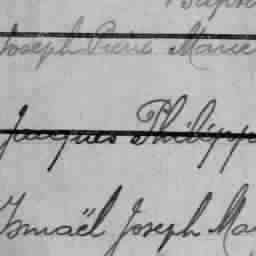 Joseph Pierre Marie
Jacques Philippe
Ismaël Joseph Ma